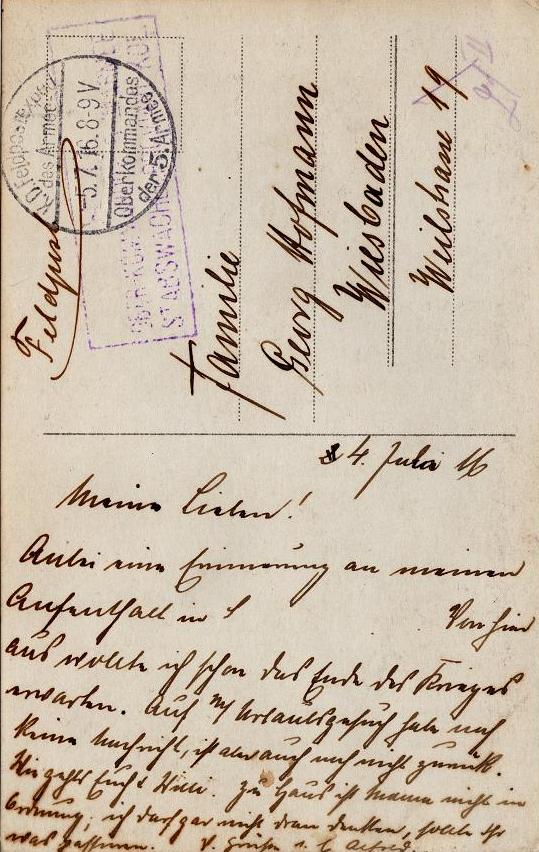 K.D. Feldpostexped.
des Armee-
5.7.16. 8-9 V
Oberkommandos
der 5. Armee
STABSWACHE
Feldpost
Familie
Georg Hofmann
Wiesbaden
Weilstrasse 19
4. Juli 16
Meine Lieben!
Anbei eine Erinnerung an meinen
Aufenthalt in S Von hier
aus wollte ich schon das Ende des Krieges
erwarten. Auf m/ Urlaubsgesuch habe noch
keine Nachricht, ist aber auch noch nicht zurück.
Wie gehts Euch? Willi. zu Haus ist Mama nicht in
Ordnung; ich darf gar nicht dran denken, sollte ihr
was passieren. V. Grüße Alfred.